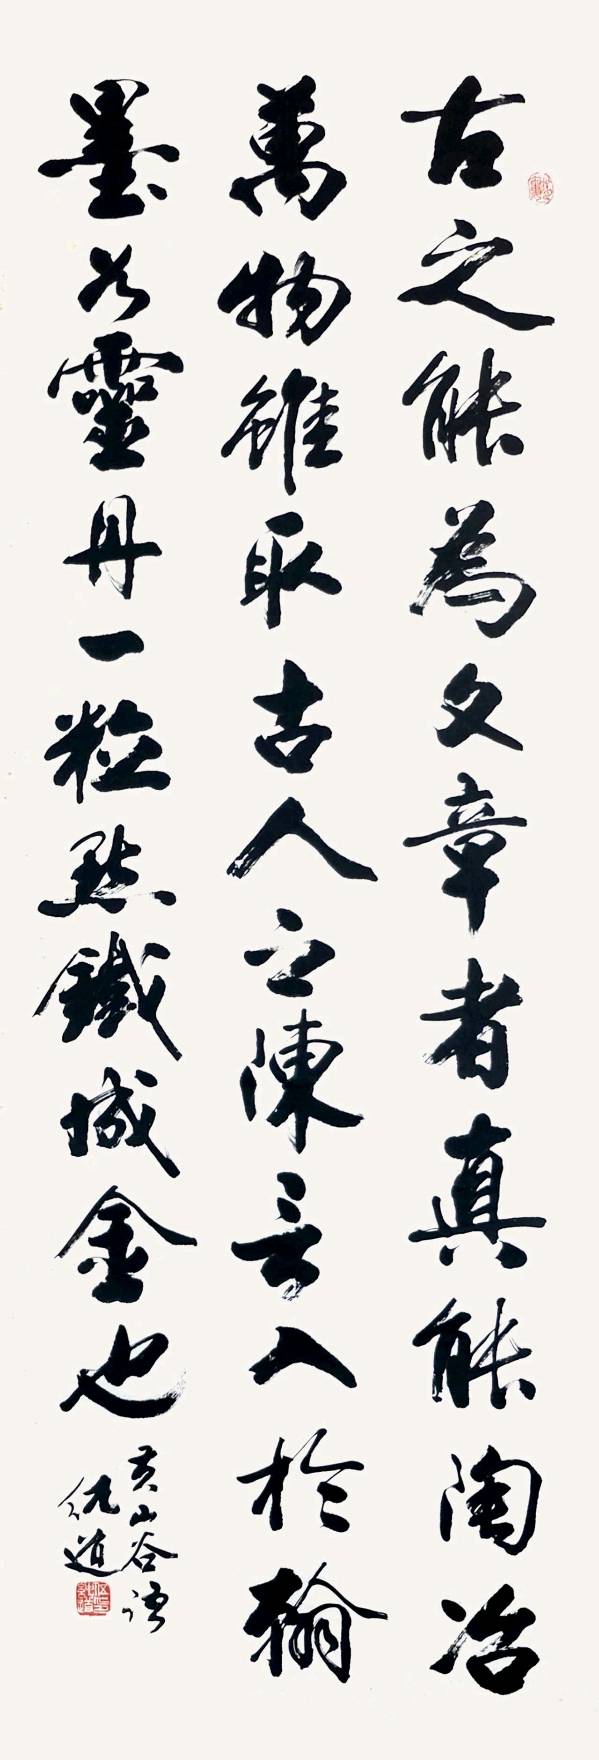 古之能為文章者真能陶冶
萬物雖取古人之陳言入於翰
墨如靈丹一粒點鐵成金也
黃山谷語